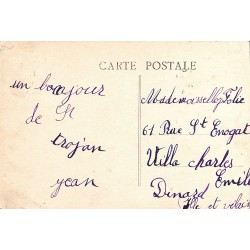 CARTE POSTALE
un bonjour
de St
trojan
jean
Mademoiselle Folie
61 Rue St Enogat
Villa charles
Emile
Dinard
Ille et vilaine